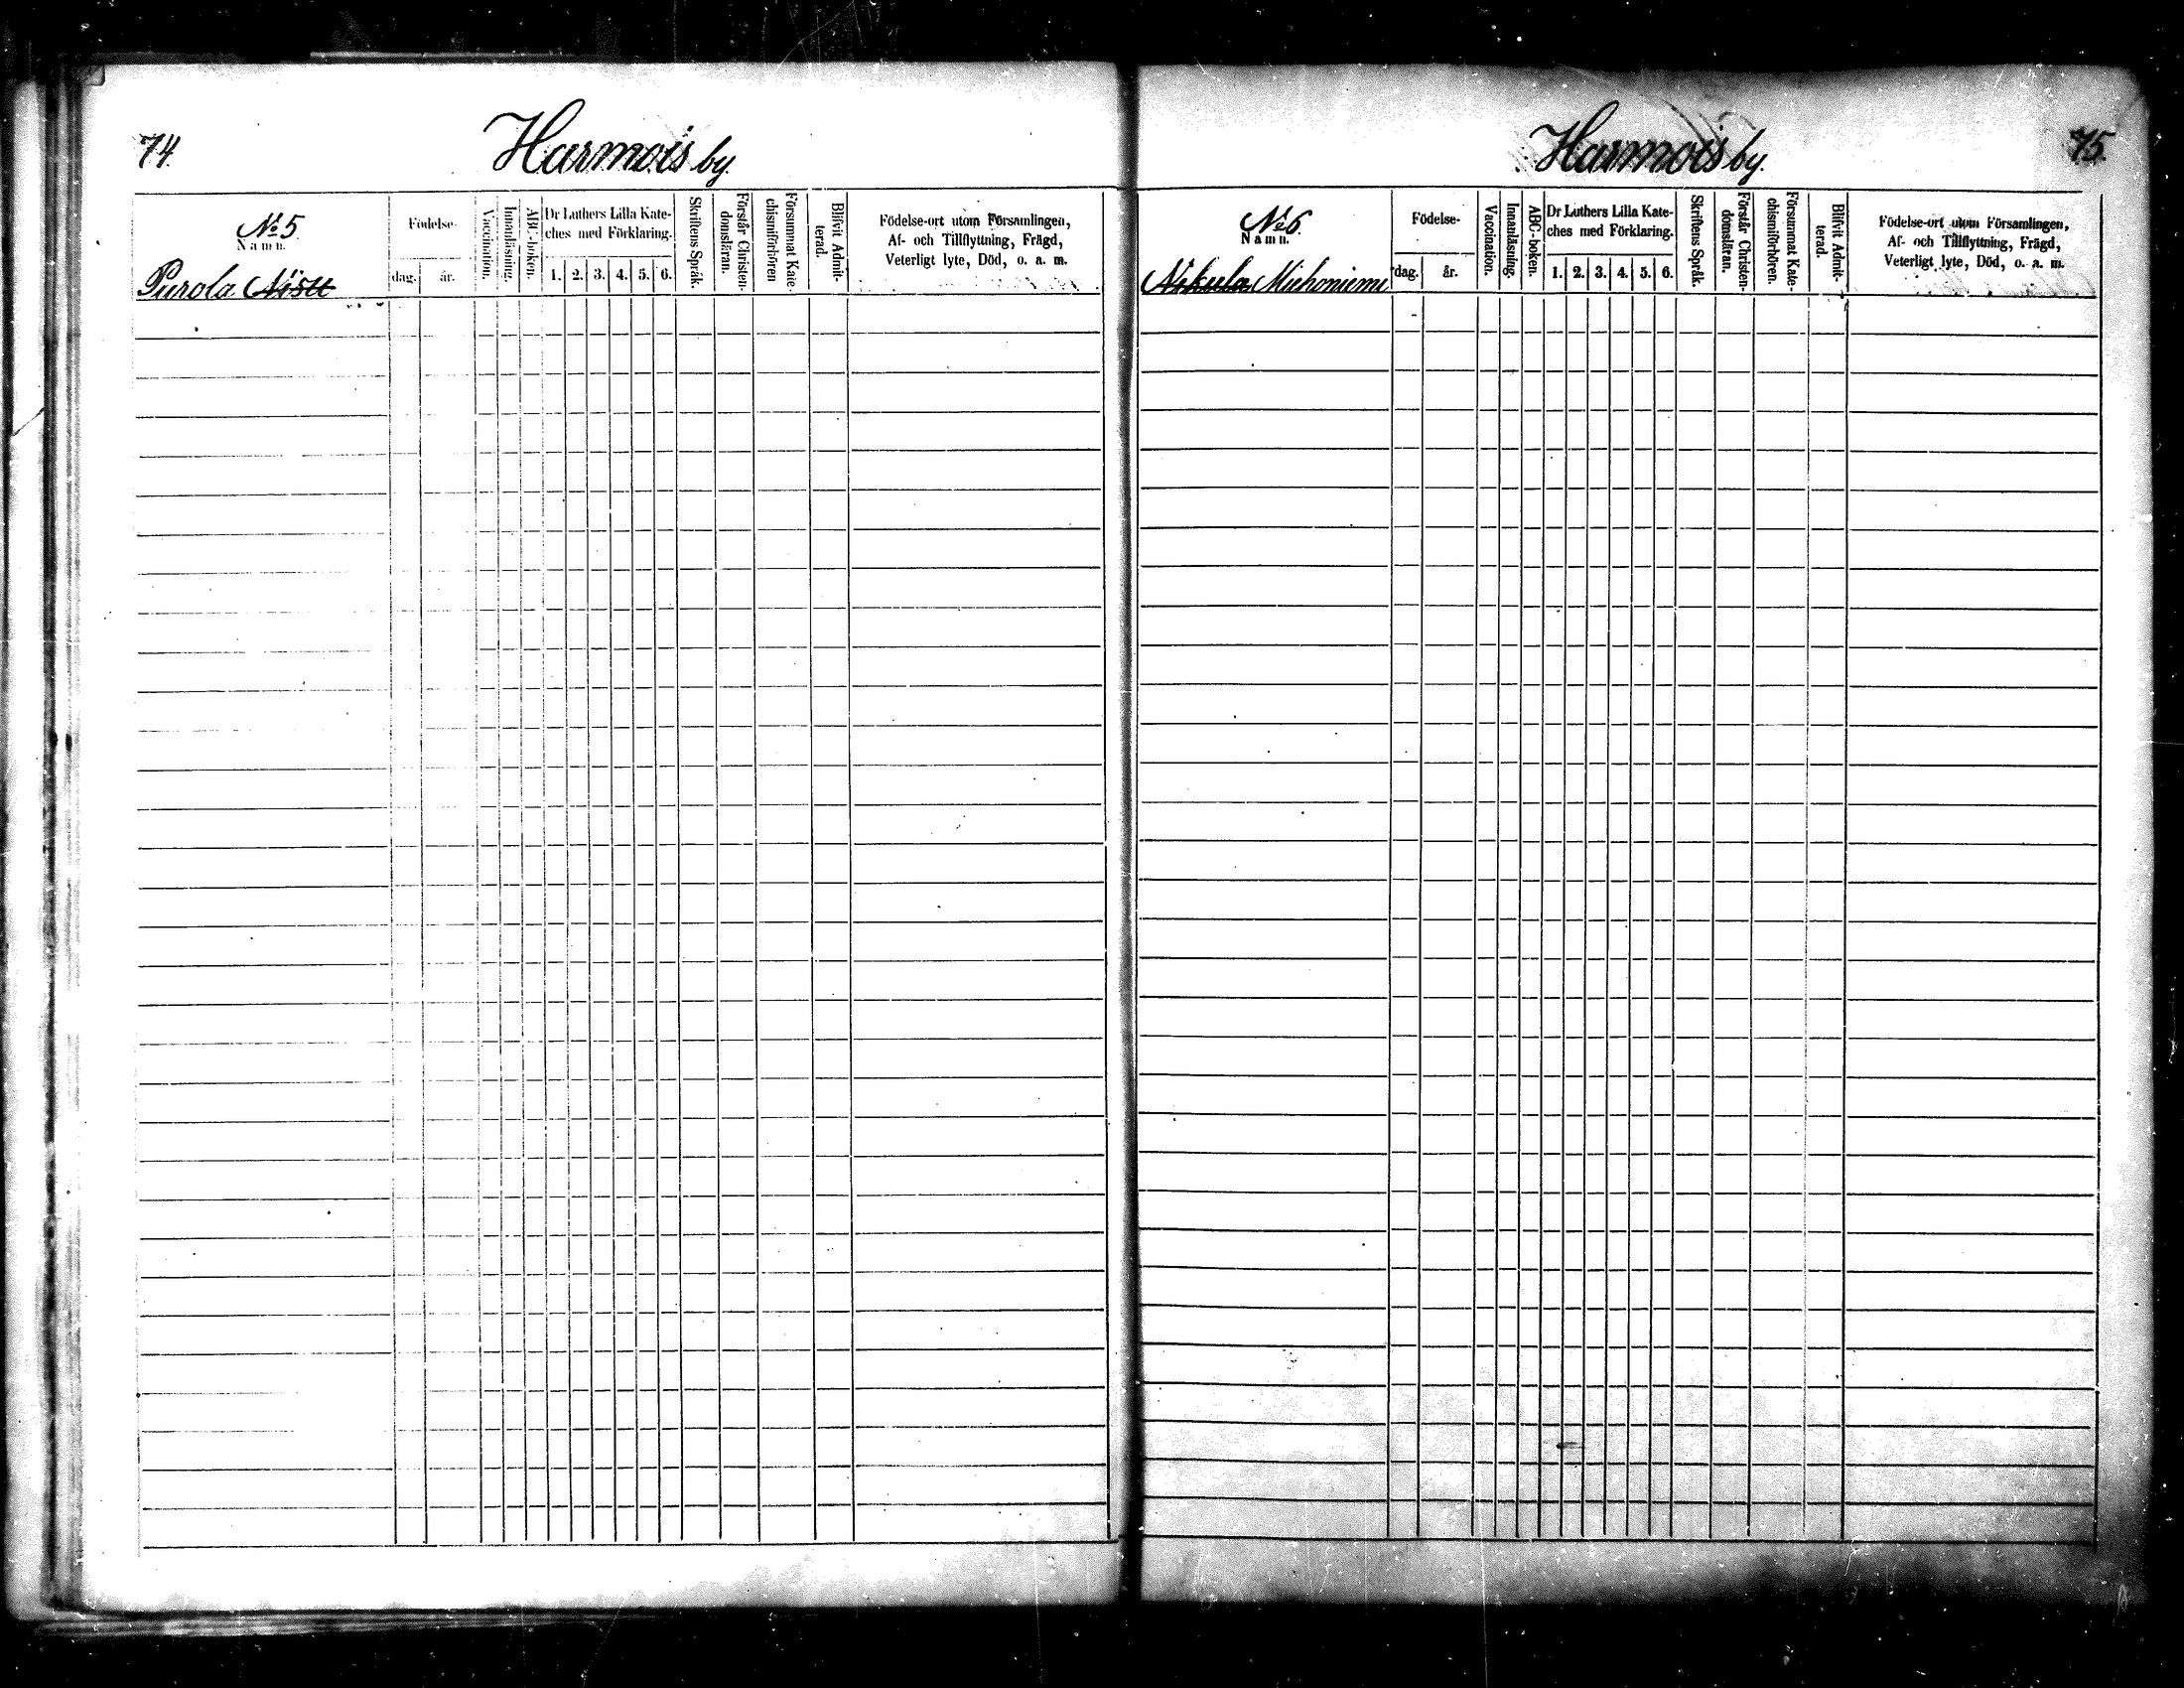 74.
Harmois by.
№ 5
Namn.
Purola
Födelse-
dag.
år.
Vaccination.
Innanläsning.
ABC-boken.
Dr Luthers Lilla Kate-
ches med Förklaring.
1. 2. 3. 4. 5. 6.
Skriftens Språk.
Förstår Christen-
domsläran.
Försummat Kate-
chismiförhören
Blifvit Admit-
terad.
Födelse-ort utom Församlingen,
Af- och Tillflyttning, Frägd,
Veterligt lyte, Död, o. a. m.
Harmois by.
75.
№ 6.
Namn.
Nikula Miehoniemi
Födelse-
dag.
år.
Vaccination.
Innanläsning.
ABC-boken.
Dr Luthers Lilla Kate-
ches med Förklaring.
1. 2. 3. 4. 5. 6.
Skriftens Språk.
Förstår Christen-
domsläran.
Försummat Kate-
chismiförhören.
Blifvit Admit-
terad.
Födelse-ort utom Församlingen,
Af- och Tillflyttning, Frägd,
Veterligt lyte, Död, o. a. m.